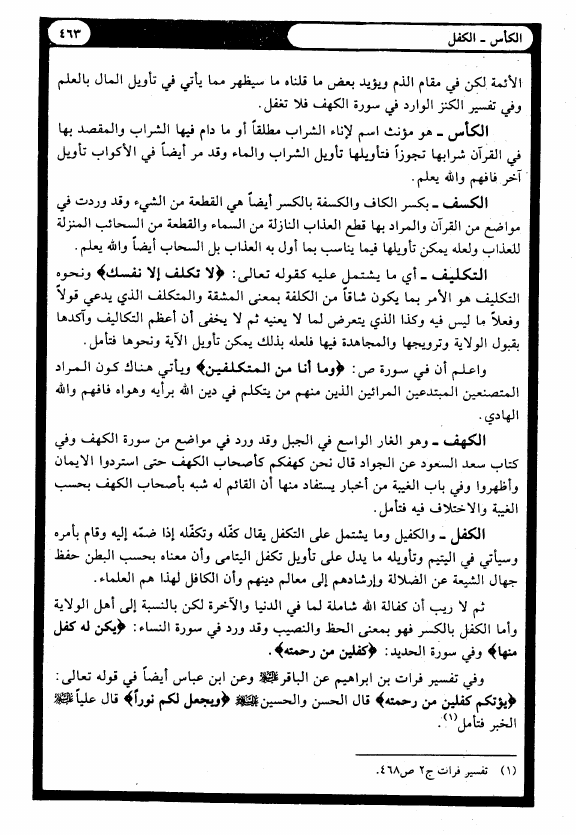 الكأس ـ الكفل
٤٦٣
الأئمة لكن في مقام الذم ويؤيد بعض ما قلناه ما سيظهر مما يأتي في تأويل المال بالعلم
وفي تفسير الكنز الوارد في سورة الكهف فلا تغفل.
الكأس ـ هو مؤنث اسم لإناء الشراب مطلقاً أو ما دام فيها الشراب والمقصد بها
في القرآن شرابها تجوزاً فتأويلها تأويل الشراب والماء وقد مر أيضاً في الأكواب تأويل
آخر فافهم والله يعلم.
الكسف ـ بكسر الكاف والكسفة بالكسر أيضاً هي القطعة من الشيء وقد وردت في
مواضع من القرآن والمراد بها قطع العذاب النازلة من السماء والقطعة من السحائب المنزلة
للعذاب ولعله يمكن تأويلها فيما يناسب بما أول به العذاب بل السحاب أيضاً والله يعلم.
التكليف ـ أي ما يشتمل عليه كقوله تعالى: ﴿لا تكلف إلا نفسك﴾ ونحوه
التكليف هو الأمر بما يكون شاقاً من الكلفة بمعنى المشقة والمتكلف الذي يدعي قولاً
وفعلاً ما ليس فيه وكذا الذي يتعرض لما لا يعنيه ثم لا يخفى أن أعظم التكاليف وآكدها
بقبول الولاية وترويجها والمجاهدة فيها فلعله بذلك يمكن تأويل الآية ونحوها فتأمل.
واعلم أن في سورة ص: ﴿وما أنا من المتكلفين﴾ ويأتي هناك كون المراد
المتصنعين المبتدعين المرائين الذين منهم من يتكلم في دين الله برأيه وهواه فافهم والله
الهادي.
الكهف ـ وهو الغار الواسع في الجبل وقد ورد في مواضع من سورة الكهف وفي
كتاب سعد السعود عن الجواد قال نحن كهفكم كأصحاب الكهف حتى استردوا الايمان
وأظهروا وفي باب الغيبة من أخبار يستفاد منها أن القائم له شبه بأصحاب الكهف بحسب
الغيبة والاختلاف فيه فتأمل.
الكفل ـ والكفيل وما يشتمل على التكفل يقال كفّله وتكفّله إذا ضمّه إليه وقام بأمره
وسيأتي في اليتيم وتأويله ما يدل على تأويل تكفل اليتامى وأن معناه بحسب البطن حفظ
جهال الشيعة عن الضلالة وإرشادهم إلى معالم دينهم وأن الكافل لهذا هم العلماء.
ثم لا ريب أن كفالة الله شاملة لما في الدنيا والآخرة لكن بالنسبة إلى أهل الولاية
وأما الكفل بالكسر فهو بمعنى الحظ والنصيب وقد ورد في سورة النساء: ﴿يكن له كفل
منها﴾ وفي سورة الحديد: ﴿كفلين من رحمته﴾.
وفي تفسير فرات بن ابراهيم عن الباقر ﷺ وعن ابن عباس أيضاً في قوله تعالى:
﴿يؤتكم كفلين من رحمته﴾ قال الحسن والحسين ﷺ ﴿ويجعل لكم نوراً﴾ قال علياً ﷺ
الخبر فتأمل(١).
(١) تفسير فرات ج٢ ص٤٦٨.